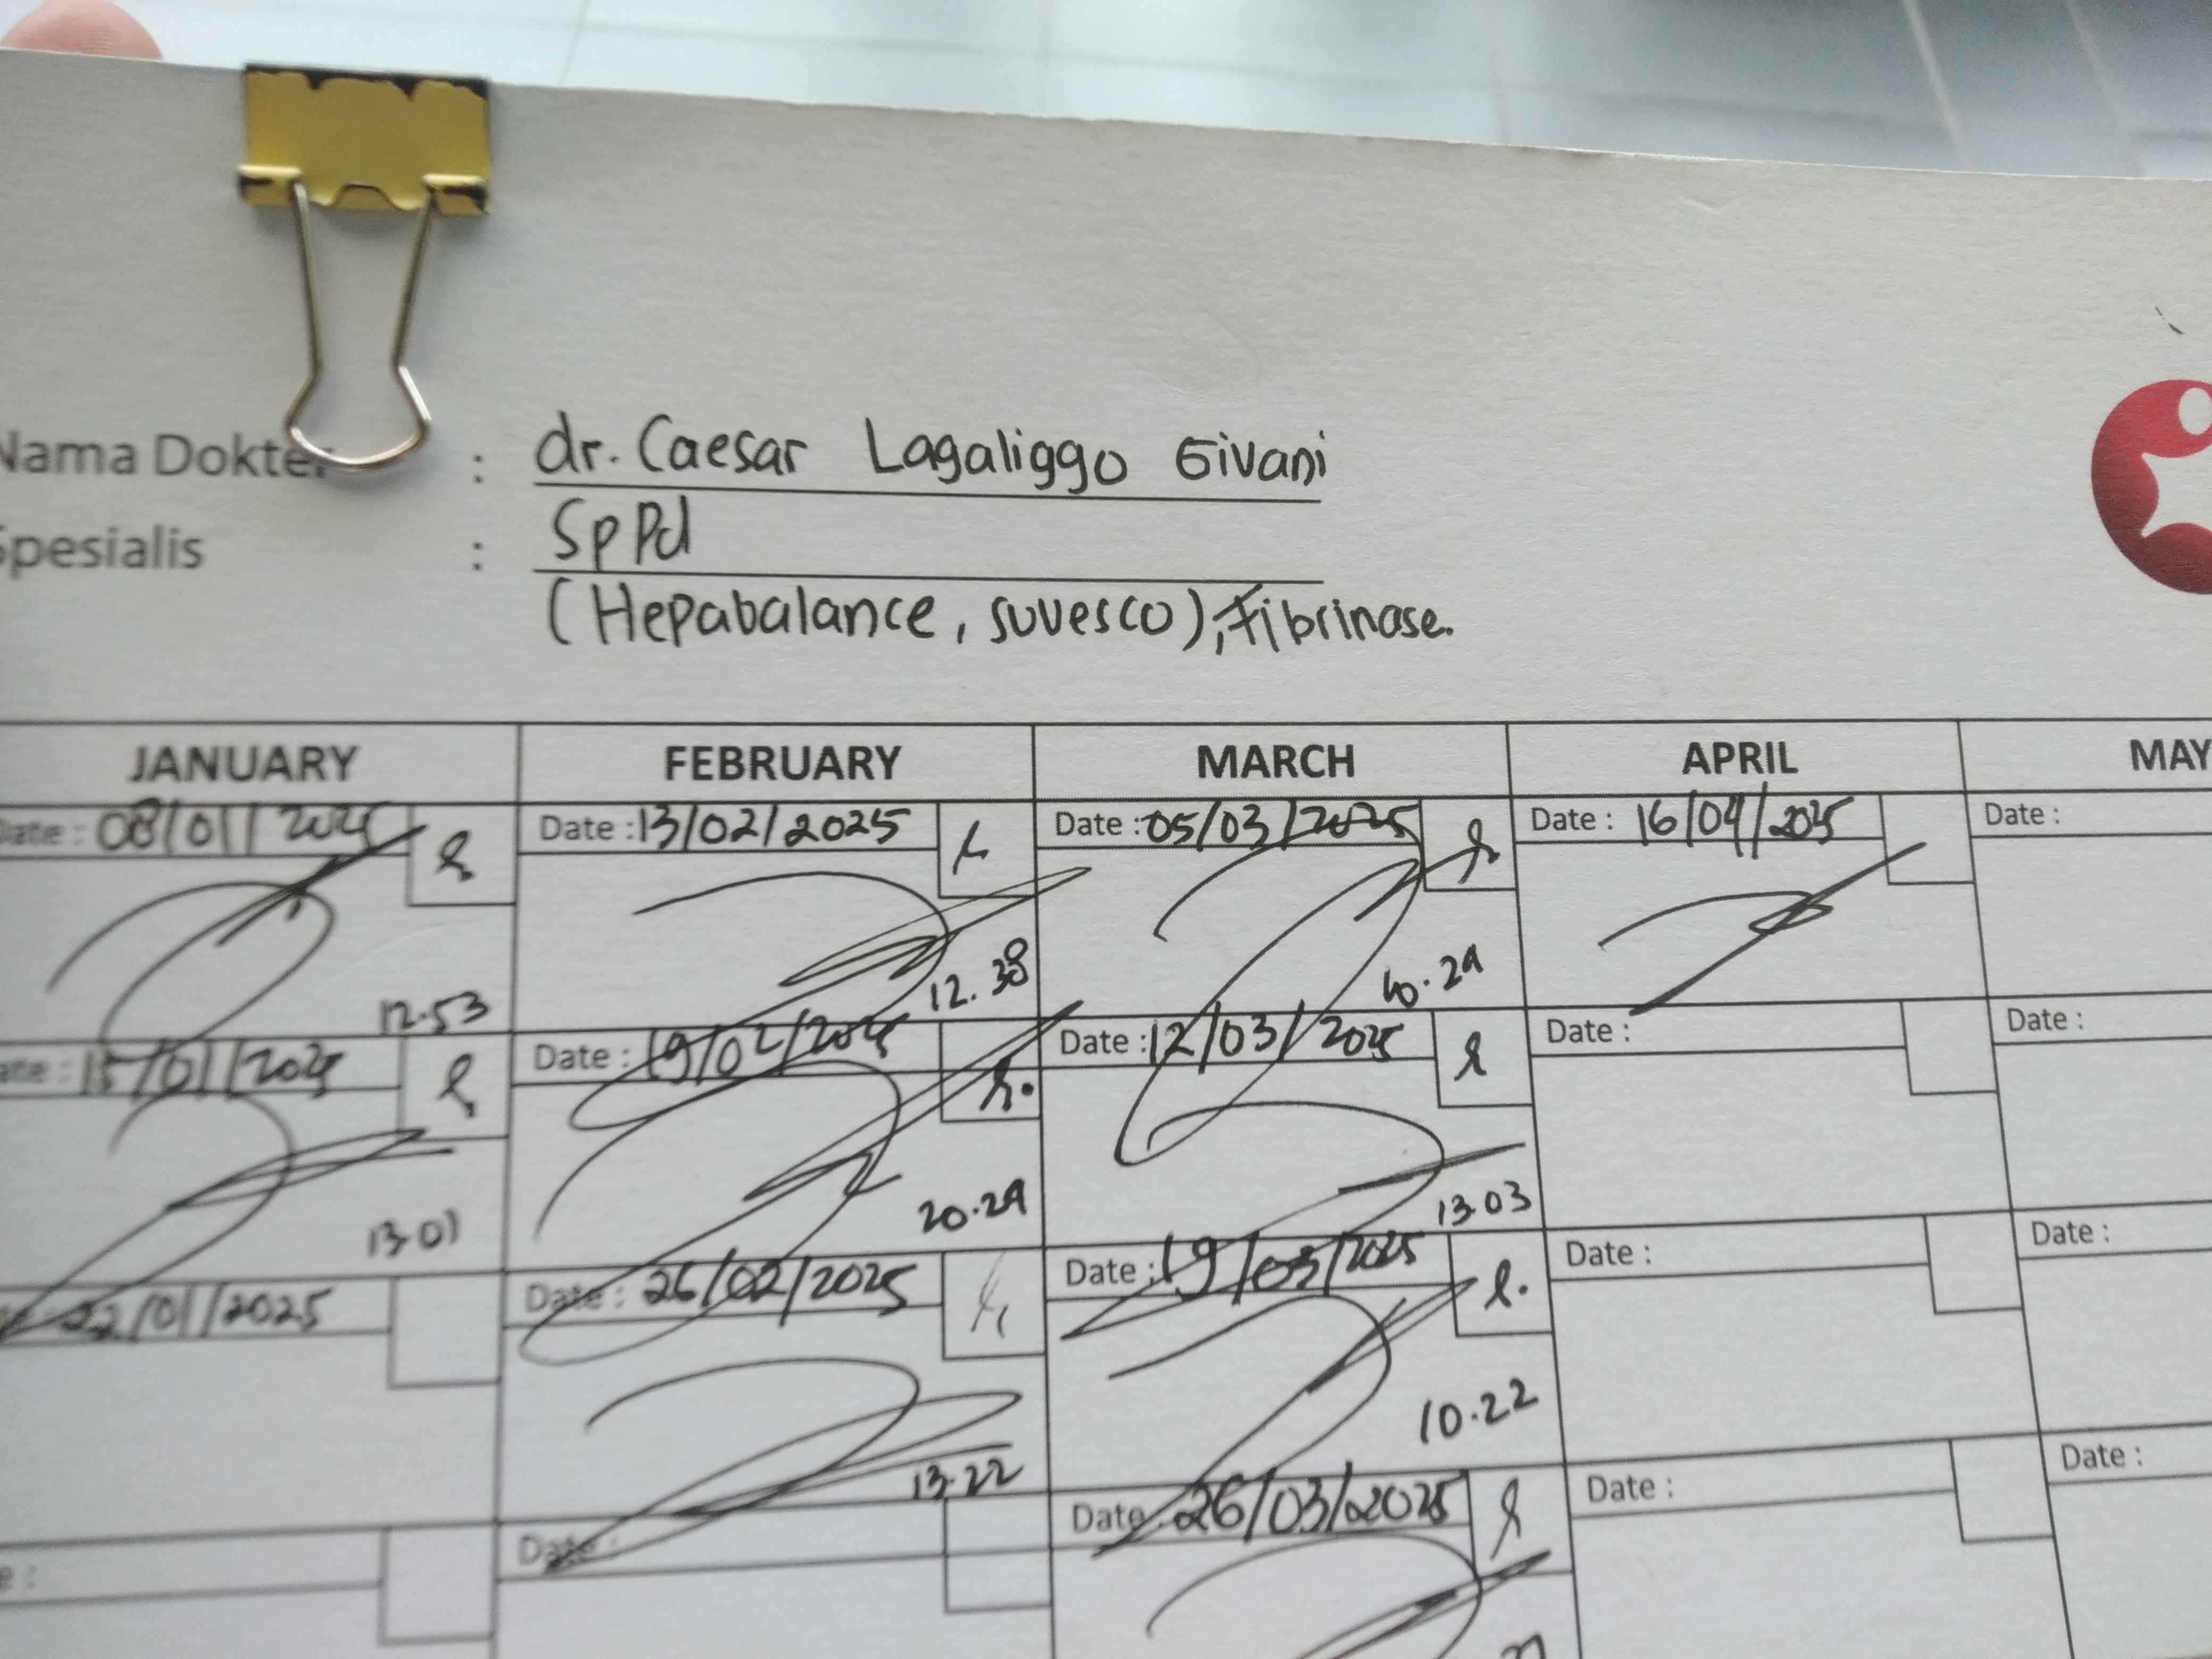 Nama Dokter : dr. Caesar Lagaliggo Givani
Spesialis : SpPd
(Hepabalance, suvesco), Fibrinase.
JANUARY FEBRUARY MARCH APRIL MAY
Date : 08/01/2025 Date : 13/02/2025 Date : 05/03/2025 Date : 16/04/2025 Date :
12.53 12.38 10.29
Date : 15/01/2025 Date : 19/02/2025 Date : 12/03/2025 Date : Date :
13.01 20.29 13.03
22/01/2025 Date : 26/02/2025 Date : 19/03/2025 Date : Date :
13.22 10.22
Date : Date : 26/03/2025 Date : Date :